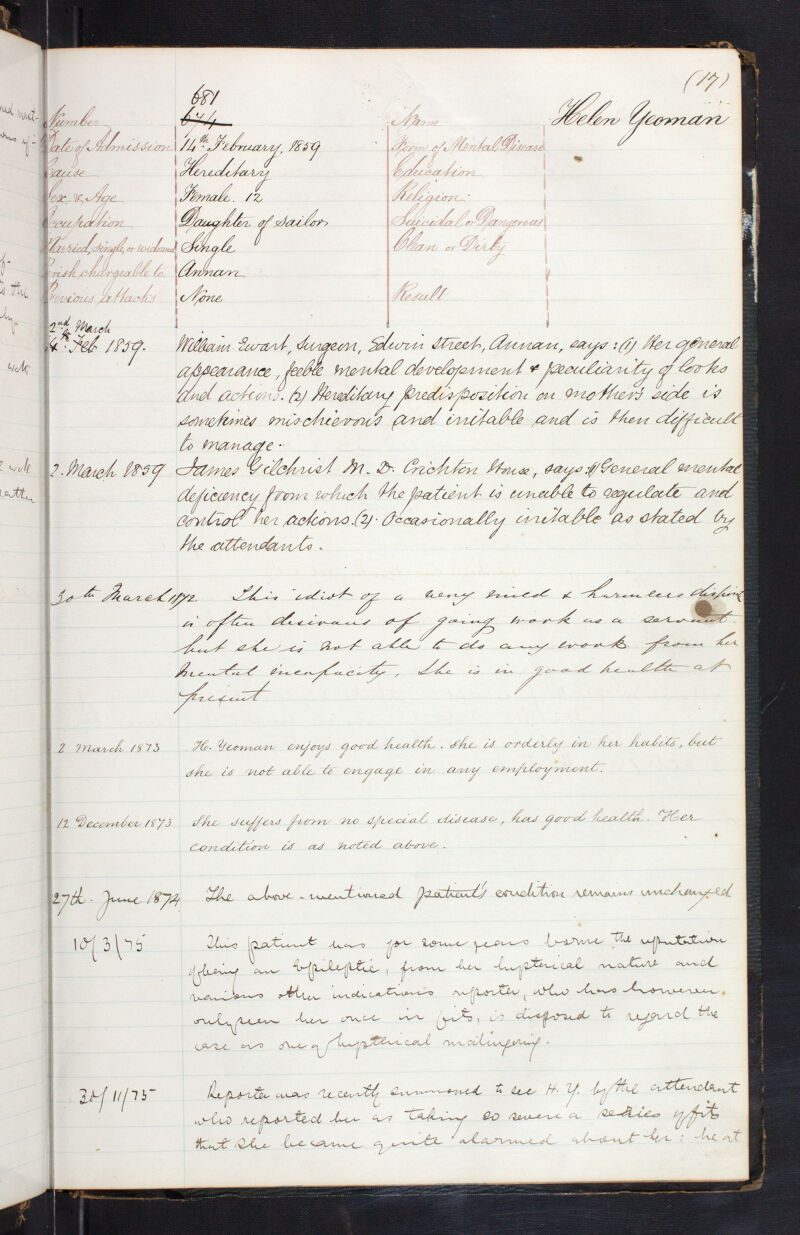 (17)
681
674
Number
Name
Helen Yeoman
Date of Admission
14th February, 1859
Form of Mental Disease
Cause
Hereditary
Education
Sex & Age
Female. 12
Religion
Occupation
Daughter of Sailor
Suicidal or Dangerous
Married, single, or widowed
Single
Clean or Dirty
Parish chargeable to
Annan
Previous attacks
None
Result
2nd March
4th Feb 1859.
William Ewart, Surgeon, Edwin Street, Annan, says: (1) Her general
appearance, feeble mental development & peculiarity of looks
and actions. (2) Hereditary predisposition on mother's side is
sometimes mischievous and irritable and is then difficult
to manage.
2. March 1859
James Gilchrist M.D. Crichton House, says (1) General mental
deficiency from which the patient is unable to regulate and
control her actions. (2). Occasionally irritable as stated by
the attendants.
30th March 1872
This idiot of a very mild & harmless
is often desirous of going work as a servant
but she is not able to do any work from her
mental incapacity. She is in good health at
present
2 March 1873
H. Yeoman enjoys good health. she is orderly in her habits, but
she is not able to engage in any employment.
12 December 1873
She suffers from no special disease, has good health. Her
condition is as noted above.
27th. June 1874
The above-mentioned patient's condition remains unchanged
10/3/75
This patient has for some years borne the reputation
of being an Epileptic, from her hysterical nature and
various other indications reporter, who has however
only seen her once in fits, is disposed to regard the
case as one of hysterical malingering.
30/11/75
Reporter was recently summoned to see H.Y. by the attendant
who reported her as taking so severe a series of fits
that she became quite alarmed about her: he at